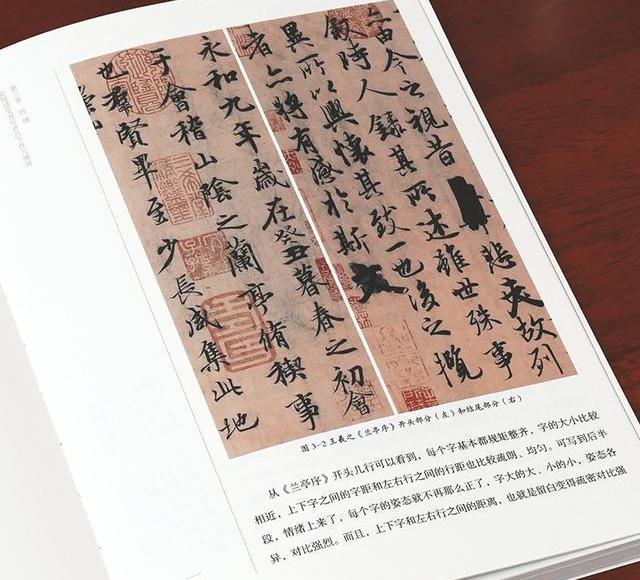 永和九年歲在癸丑暮春之初會
于會稽山陰之蘭亭脩稧事
也羣賢畢至少長咸集此地
由今之視昔悲夫故列
敘時人錄其所述雖世殊事
異所以興懷其致一也後之攬
者亦將有感於斯文
图3-2 王羲之《兰亭序》开头部分（左）和结尾部分（右）
从《兰亭序》开头几行可以看到，每个字基本都规矩整齐，字的大小比较
相近，上下字之间的字距和左右行之间的行距也比较疏朗、均匀。可写到后半
段，情绪上来了，每个字的姿态就不再那么正了，字大的大、小的小，姿态各
异，对比强烈。而且，上下字和左右行之间的距离，也就是留白变得疏密对比强